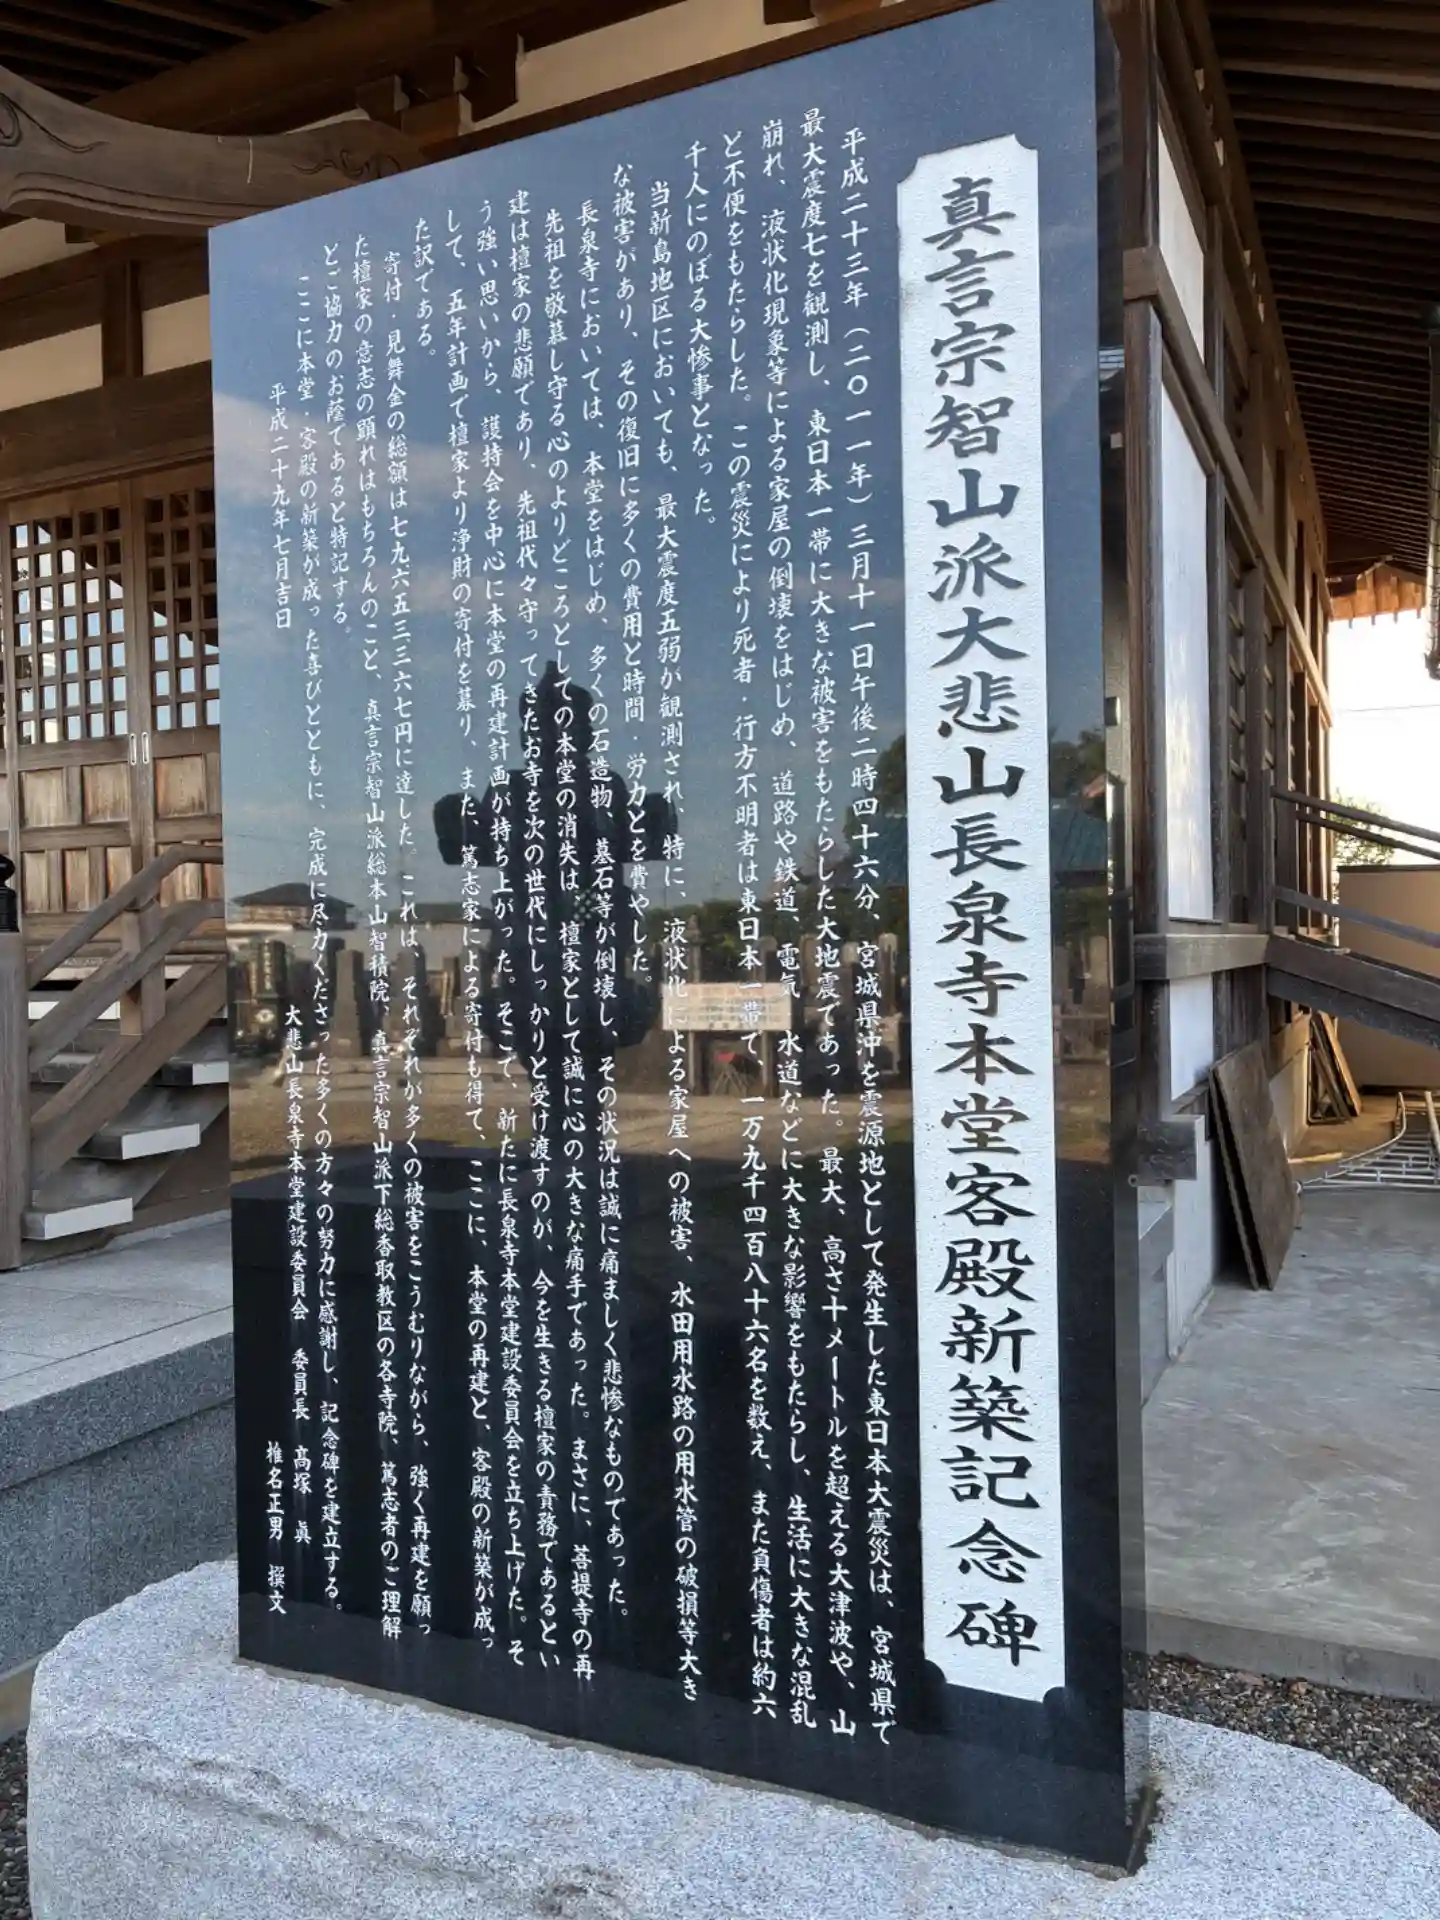 真言宗智山派大悲山長泉寺本堂客殿新築記念碑
平成二十三年（二〇一一年）三月十一日午後二時四十六分、宮城県沖を震源地として発生した東日本大震災は、宮城県で
最大震度七を観測し、東日本一帯に大きな被害をもたらした大地震であった。最大、高さ十メートルを超える大津波や、山
崩れ、液状化現象等による家屋の倒壊をはじめ、道路や鉄道、電気、水道などに大きな影響をもたらし、生活に大きな混乱
と不便をもたらした。この震災により死者・行方不明者は東日本一帯で、一万九千四百八十六名を数え、また負傷者は約六
千人にのぼる大惨事となった。
当新島地区においても、最大震度五弱が観測され、特に、液状化による家屋への被害、水田用水路の用水管の破損等大き
な被害があり、その復旧に多くの費用と時間・労力とを費やした。
長泉寺においては、本堂をはじめ、多くの石造物、墓石等が倒壊し、その状況は誠に痛ましく悲惨なものであった。
先祖を敬慕し守る心のよりどころとしての本堂の消失は、檀家として誠に心の大きな痛手であった。まさに、菩提寺の再
建は檀家の悲願であり、先祖代々守ってきたお寺を次の世代にしっかりと受け渡すのが、今を生きる檀家の責務であるとい
う強い思いから、護持会を中心に本堂の再建計画が持ち上がった。そこで、新たに長泉寺本堂建設委員会を立ち上げた。そ
して、五年計画で檀家より浄財の寄付を募り、また、篤志家による寄付も得て、ここに、本堂の再建と、客殿の新築が成っ
た訳である。
寄付・見舞金の総額は七九六五三三六七円に達した。これは、それぞれが多くの被害をこうむりながら、強く再建を願っ
た檀家の意志の顕れはもちろんのこと、真言宗智山派総本山智積院、真言宗智山派下総香取教区の各寺院、篤志者のご理解
とご協力のお蔭であると特記する。
ここに本堂・客殿の新築が成った喜びとともに、完成に尽力くださった多くの方々の努力に感謝し、記念碑を建立する。
平成二十九年七月吉日
大悲山長泉寺本堂建設委員会 委員長 髙塚 眞
椎名正男 撰文